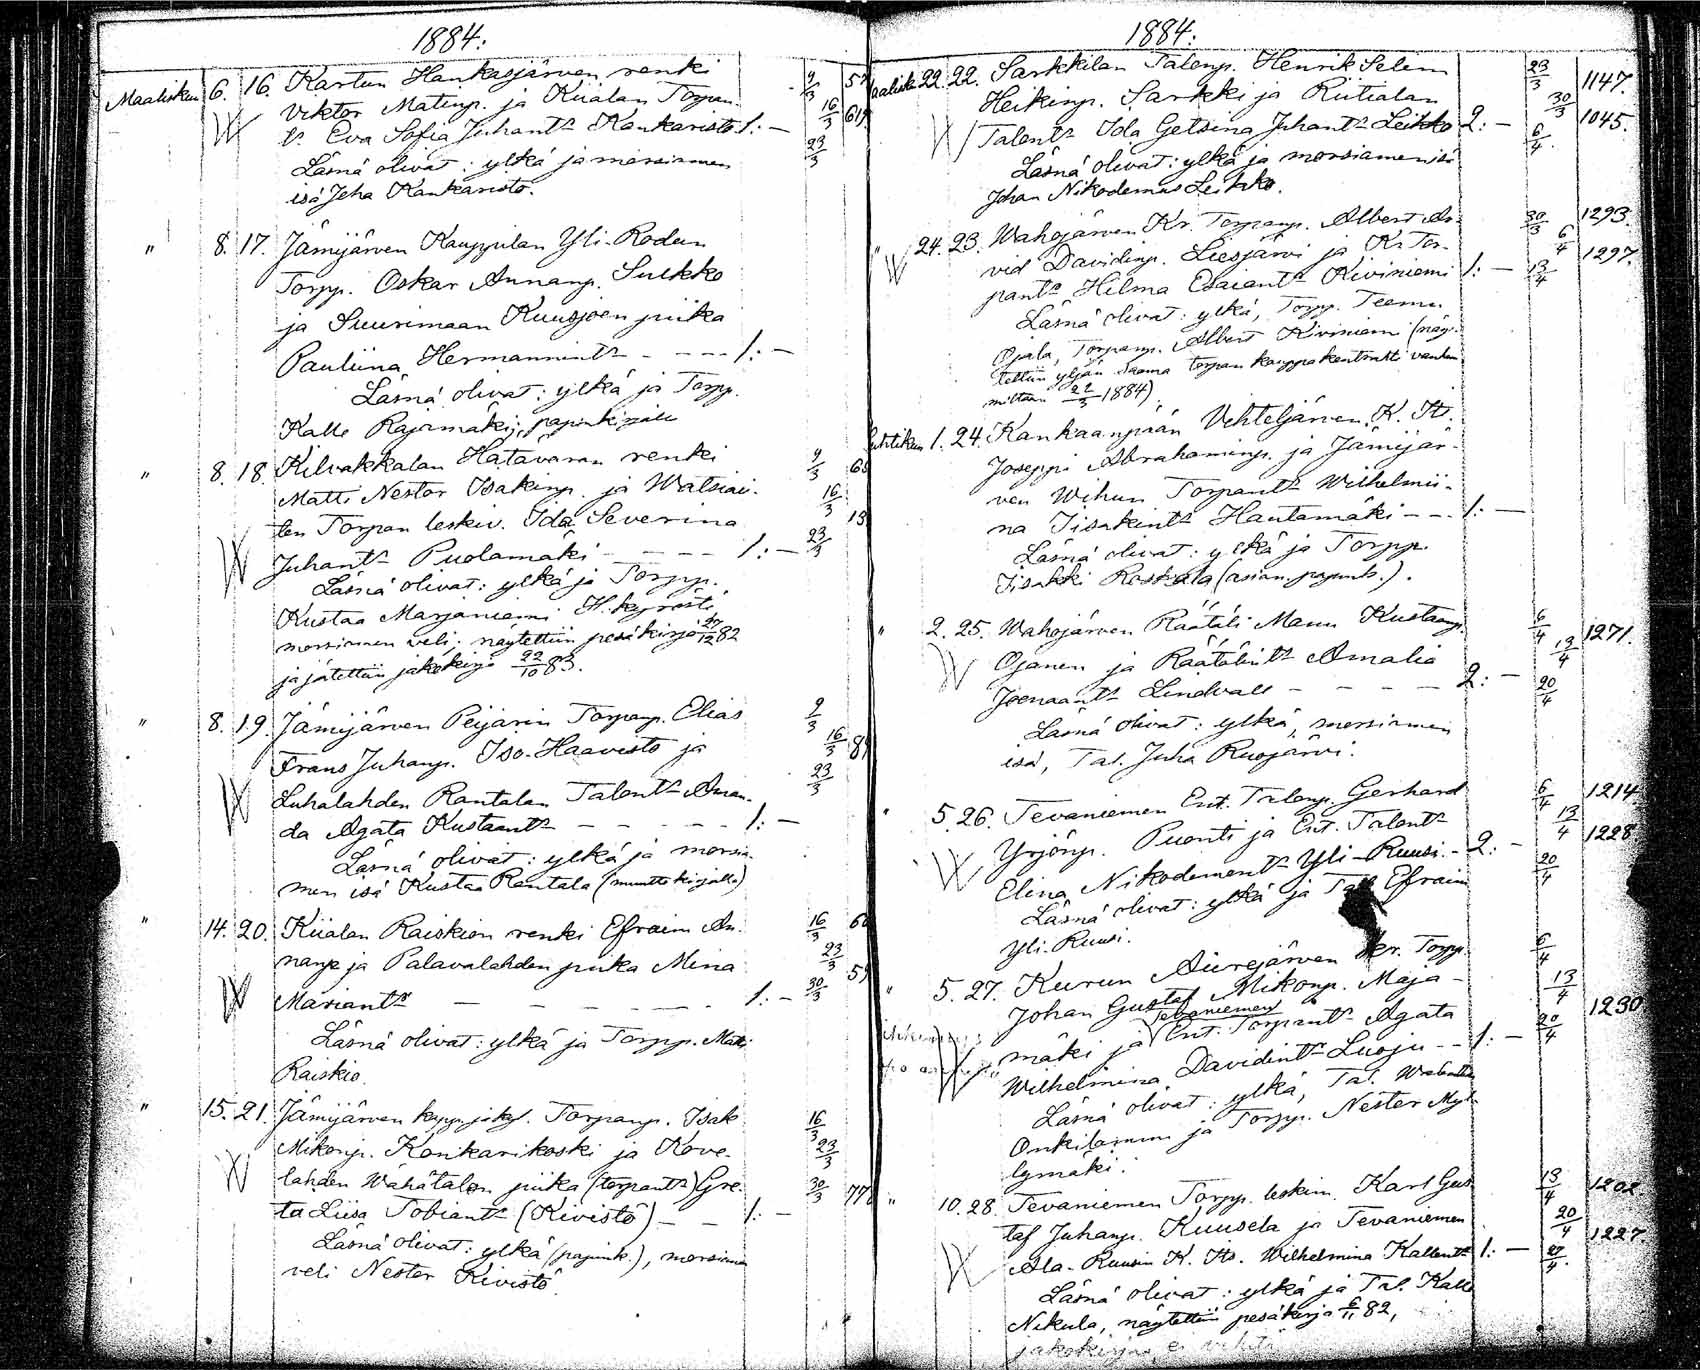 1884.
Maalisku 6. 16. Kartun Hankasjärven renki 9/3
Viktor Matinp. ja Kiialan Torpan- 16/3
t:r Eva Sofia Juhant:r Kankaristo 1: — 23/3
Läsnä olivat: ylkä ja morsiamen
isä Juha Kankaristo.
" 8. 17. Jämijärven Kauppilan Yli-Rodun
Torpp. Oskar Annanp. Sulkko
ja Suurimaan Kuusjoen piika
Pauliina Hermannint:r - - - - 1: —
Läsnä olivat: ylkä ja Torpp.
Kalle Rajamäki; papinkirjalla
" 8. 18. Kilvakkalan Hatavaran renki 9/3
Matti Nestor Isakinp. ja Watsiai- 16/3
ten Torpan leskiv. Ida Severina
Juhant:r Puolamäki - - - - 1: — 23/3
Läsnä olivat: ylkä ja Torpp.
Kustaa Marjaniemi H.kyröstä,
morsiamen veli; näytettiin pesäkirja 27/12 82
ja jätettiin jakokirja 22/10 83.
" 8. 19. Jämijärven Peijarin Torpanp. Elias 9/3
Frans Juhanp. Iso-Haavisto ja 16/3
Luhalahden Rantalan Talont:r Aman- 23/3
da Agata Kustaant:r - - - - - 1: —
Läsnä olivat: ylkä ja morsia-
men isä Kustaa Rantala (muuttokirjalla)
" 14. 20. Kiialan Raiskion renki Efraim An- 16/3
nanp. ja Palavalahden piika Mina 23/3
Mariant:r - - - - - - 1: — 30/3
Läsnä olivat: ylkä ja Torpp. Matti
Raiskio.
" 15. 21. Jämijärven kapp. Torpanp. Isak 16/3
Mikonp. Konkarikoski ja Kove- 23/3
lahden Wähätalon piika (torpant:r) Gre- 30/3 77
ta Liisa Tobiant:r (Kivistö) - - 1: —
Läsnä olivat: ylkä (papink.), morsiamen
veli Nestor Kivistö.
1884.
aalisk. 22. 22. Sarkkilan Talonp. Henrik Selim 23/3 1147.
Heikinp. Sarkki ja Riitialan 30/3
Talont:r Ida Getsina Juhant:r Leikko 2: — 6/4 1045.
Läsnä olivat: ylkä ja morsiamen isä
Johan Nikodemus Leikko.
" 24. 23. Wahojärven Kr. Torpanp. Albert Ar- 30/3 1293.
vid Davidinp. Liesjärvi ja Kr. Tor- 6/4
pant:r Hilma Esaiant:r Kiviniemi 1: — 13/4 1297.
Läsnä olivat: ylkä, Torpp. Teemu
Ojala, Torpanp. Albert Kiviniemi (näy-
tettiin yljän saama torpan kauppakontrahti
22/3 1884).
huhtikun 1. 24. Kankaanpään Vehteljärven K. It.
Joseppi Abrahaminp. ja Jämijär-
ven Wihun Torpant:r Wilhelmii-
na Iisakint:r Hautamäki - - 1: —
Läsnä olivat: ylkä ja Torpp.
Iisakki Raskala (asian. papink.).
" 2. 25. Wahojärven Räätäli Manu Kustaanp. 6/4 1271.
Ojanen ja Räätälint:r Amalia 13/4
Joonaant:r Lindvall - - - - 2: — 20/4
Läsnä olivat: ylkä, morsiamen
isä, Tal. Juha Ruojärvi.
" 5. 26. Tevaniemen Ent. Talonp. Gerhard 6/4 1214
Yrjönp. Puonti ja Ent. Talont:r 13/4 1228
Elina Nikodement:r Yli-Ruusi - 2: — 20/4
Läsnä olivat: ylkä ja Efraim
Yli-Ruusi.
" 5. 27. Kurun Aurejärven Kr. Torpp. 6/4
Johan Gustaf Mikonp. Maja- 13/4
Tevaniemen
mäki ja Ent. Torpant:r Agata 20/4 1230
Wilhelmina Davidint:r Luoju - - 1: —
Läsnä olivat: ylkä, Tal.
Onkilammi ja Torpp. Nestor Myl-
lymäki.
" 10. 28. Tevaniemen Torpp. leskim. Karl Gus- 13/4 1202
taf Juhanp. Kuusela ja Tevaniemen 20/4
Ala-Ruusin K. Its. Wilhelmina Kallent:r 1: — 27/4 1227
Läsnä olivat: ylkä ja Tal. Kalle
Nikula, näytettiin pesäkirja 6/11 82,
jakokirjaa ei